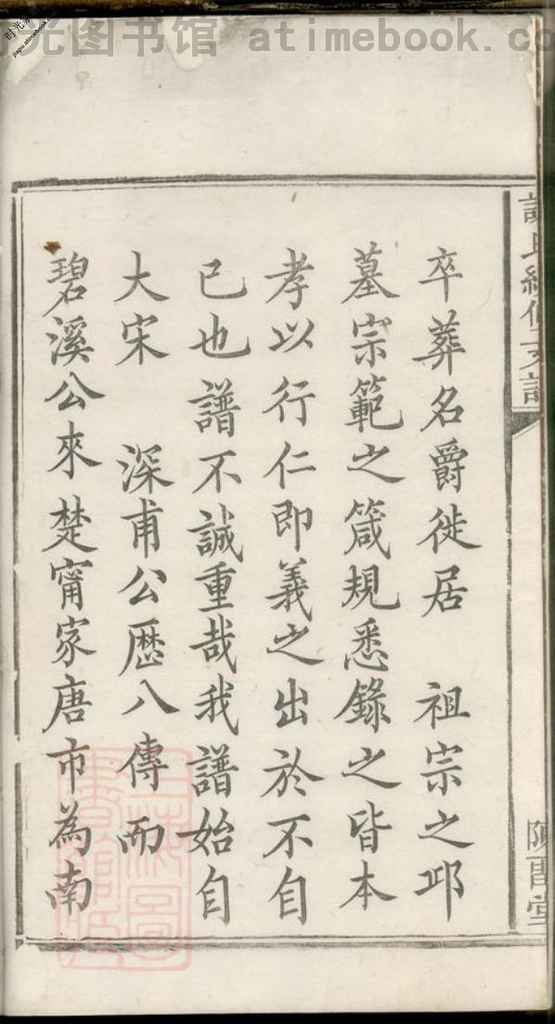 光图书馆 atimebook.com
卒葬名爵徙居 祖宗之邱
墓宗範之箴規悉錄之皆本
孝以行仁即義之出於不自
已也譜不誠重哉我譜始自
大宋 深甫公歷八傳而
碧溪公來楚甯家唐市為南